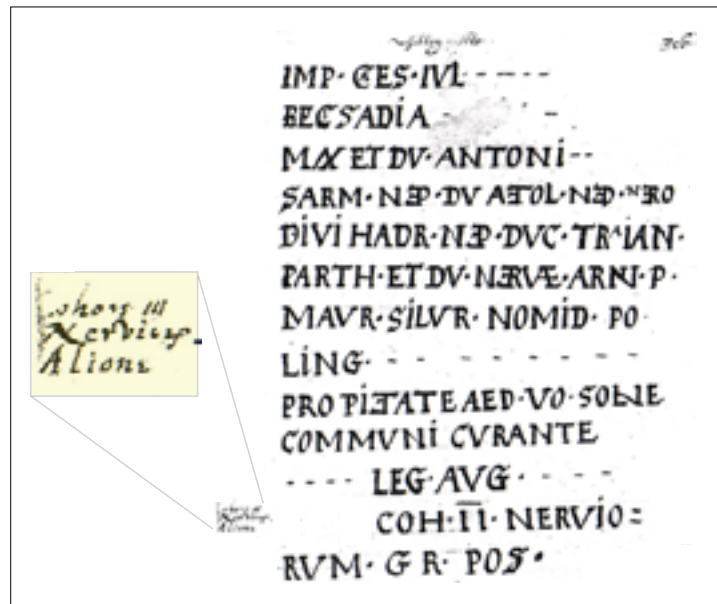 306
IMP· CÆS· IVL - - - - -
BECSADIA - - -
MAX ET DV· ANTONI--
SARM· NEP· DV ATOL· NEP· NERO
DIVI HADR· NEP· DVC· TRAIAN·
PARTH· ET DV· NERVÆ· ARNI· P·
MAVR· SILVR· NOMID· PO
LING· - - - - - - -
PRO PIETATE AED· VO· SOLNE
COMMVNI CVRANTE
- - - - LEG· AVG· - - - -
COH· II· NERVIO=
RVM· G R· POS·
Cohors III
Nerviorum
Alione